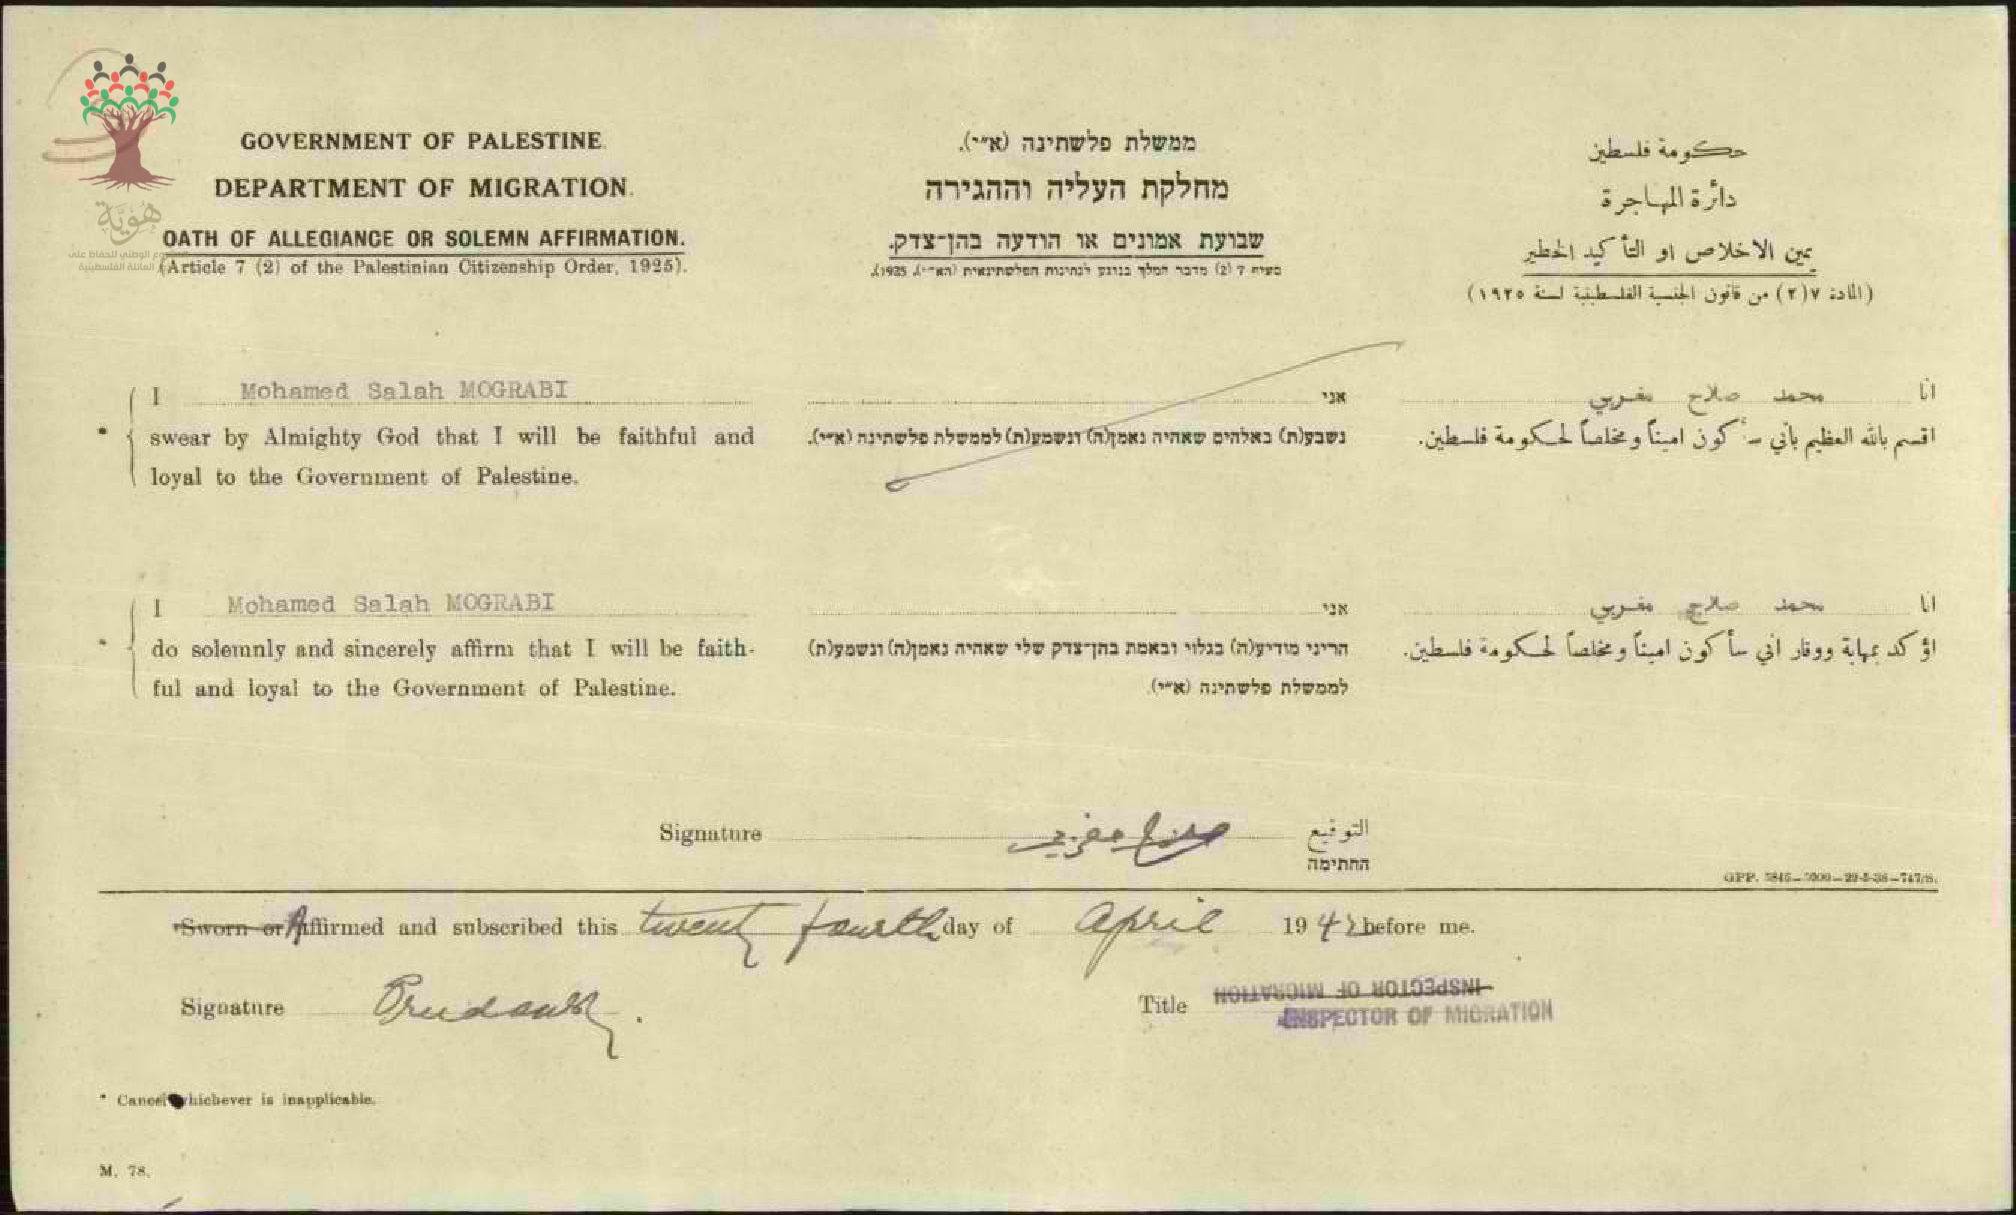 GOVERNMENT OF PALESTINE.
DEPARTMENT OF MIGRATION.
OATH OF ALLEGIANCE OR SOLEMN AFFIRMATION.
(Article 7 (2) of the Palestinian Citizenship Order, 1925).
ממשלת פלשתינה (א״י).
מחלקת העליה וההגירה
שבועת אמונים או הודעה בהן־צדק.
סעיף 7 (2) מדבר המלך בנוגע לנתינות הפלשתינאית (הא״י), 1925).
حكومة فلسطين
دائرة المهاجرة
يمين الاخلاص او التأكيد الخطير
(المادة ٧(٢) من قانون الجنسية الفلسطينية لسنة ١٩٢٥)
هويّة
الوطني للحفاظ على
العائلة الفلسطينية
I Mohamed Salah MOGRABI
* swear by Almighty God that I will be faithful and
loyal to the Government of Palestine.
אני
נשבע(ת) באלהים שאהיה נאמן(ה) ונשמע(ת) לממשלת פלשתינה (א״י).
انا محمد صلاح مغربي
اقسم بالله العظيم باني سأكون اميناً ومخلصاً لحكومة فلسطين.
I Mohamed Salah MOGRABI
* do solemnly and sincerely affirm that I will be faith-
ful and loyal to the Government of Palestine.
אני
הריני מודיע(ה) בגלוי ובאמת בהן־צדק שלי שאהיה נאמן(ה) ונשמע(ת)
לממשלת פלשתינה (א״י).
انا محمد صلاح مغربي
اؤكد بمهابة ووقار اني سأكون اميناً ومخلصاً لحكومة فلسطين.
Signature صلاح مغربي التوقيع
החתימה
GPP. 5845—5000—29-5-38—747/s.
*Sworn or Affirmed and subscribed this twenty fourth day of April 1942 before me.
Signature Title INSPECTOR OF MIGRATION
INSPECTOR OF MIGRATION
* Cancel whichever is inapplicable.
M. 78.